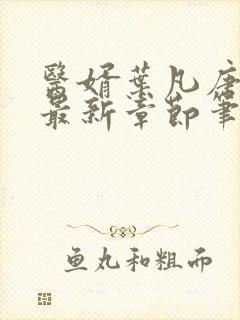 醫婿葉凡唐
最新章節筆
鱼丸和粗面